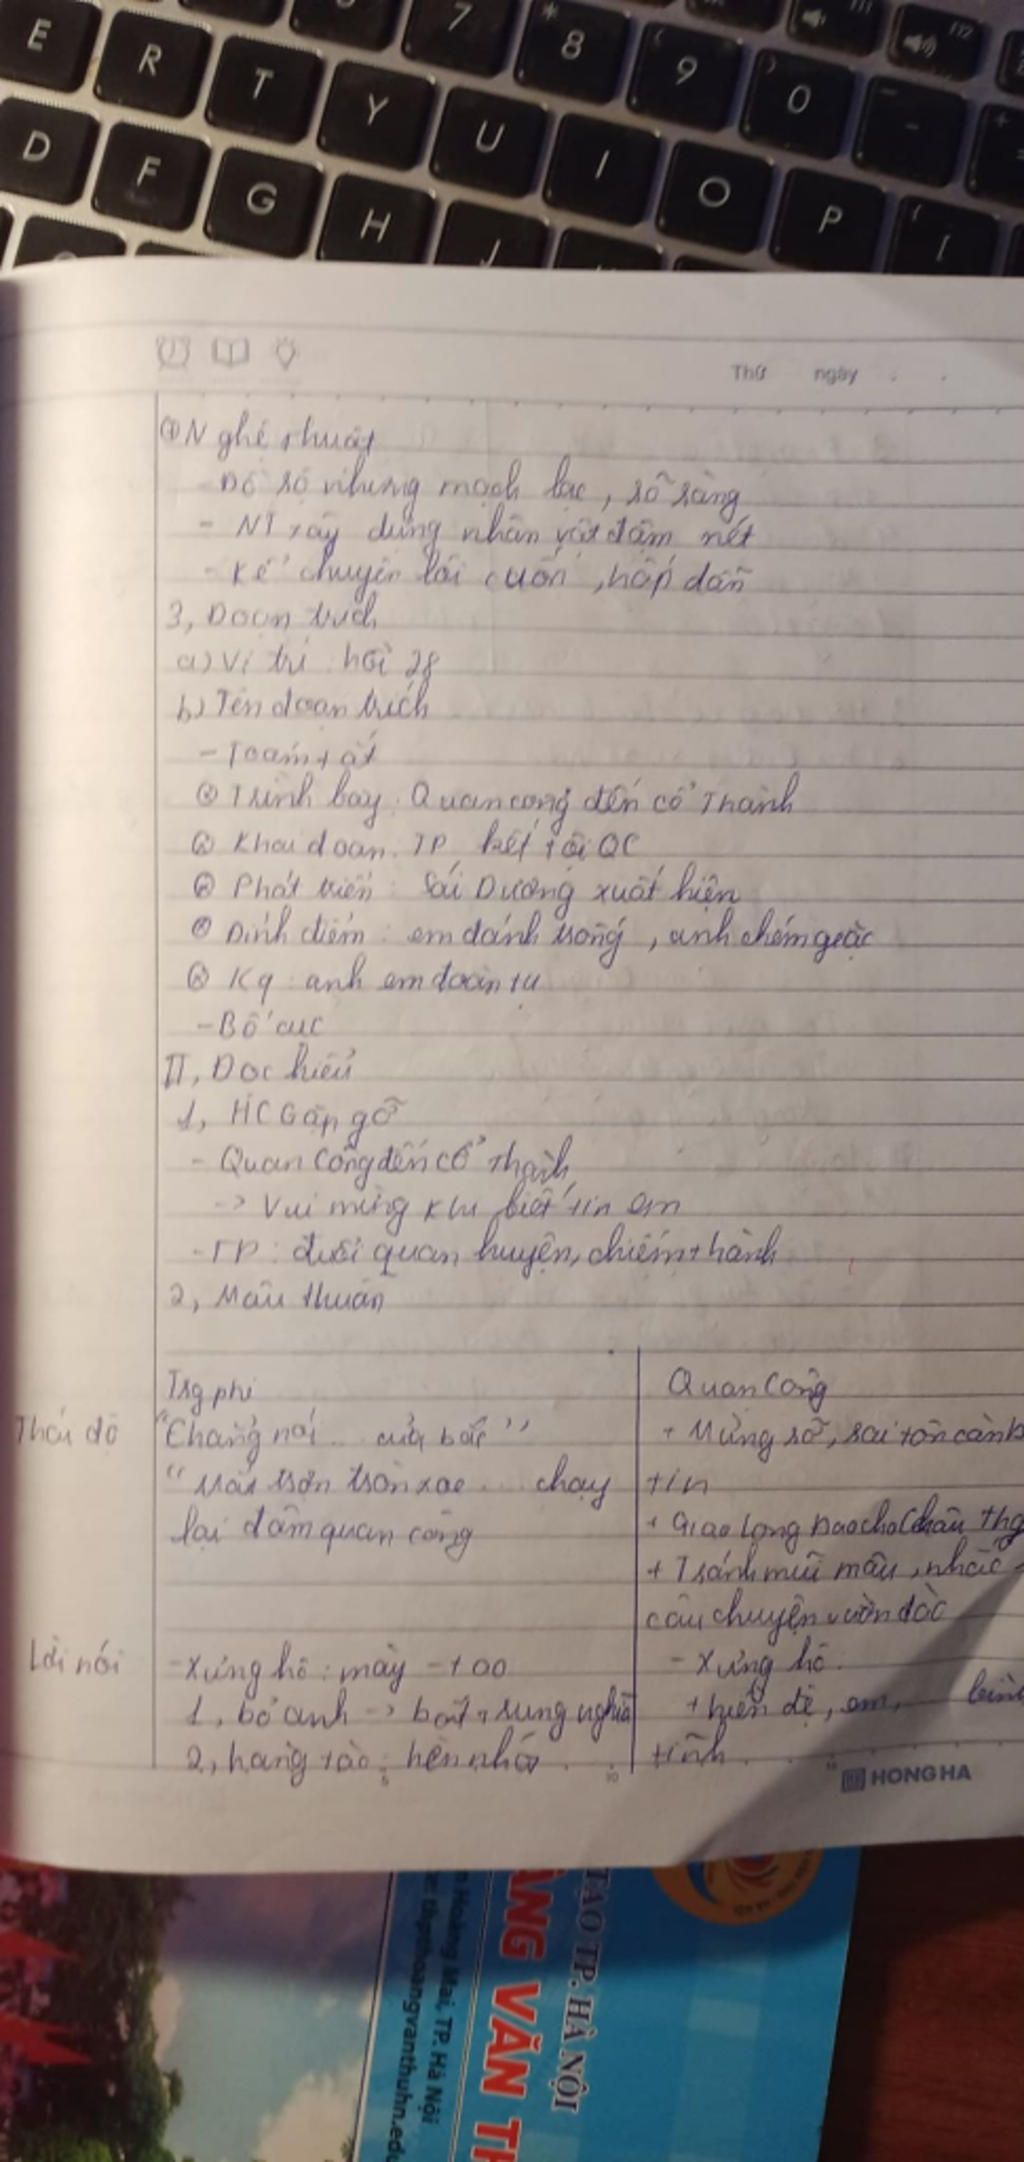 E R T Y U I O P [
7 8 9 0 -
D F G H J
f12
Thứ ngày
Nghệ thuật
- Đồ sộ nhưng mạch lạc, rõ ràng
- NT xây dựng nhân vật đậm nét
- Kể chuyện lôi cuốn, hấp dẫn
3, Đoạn trích
a) Vị trí hồi 28
b) Tên đoạn trích
- Toám tắt
Trình bày: Quan công đến cổ Thành
Khai đoan: TP kết tội QC
Phát triển: Sái Dương xuất hiện
Đỉnh điểm: em đánh trống, anh chém giặc
Kq: anh em đoàn tụ
- Bố cục
II, Đọc hiểu
1, HC Gặp gỡ
- Quan Công đến cổ Thành
-> Vui mừng khi biết tin em
- TP: đuổi quan huyện, chiếm thành
2, Mâu thuẫn
Trg phi Quan Công
Thái độ "Chẳng nói ... cửa bắc" + Mừng rỡ, sai tôn càn b
"Mắt trợn tròn xoe ... chạy tin
lại đâm quan công + Giao long đao cho Châu Thg
+ Tránh mũi mâu, nhắc
câu chuyện vườn đào
Lời nói - Xưng hô: mày - tao - Xưng hô:
1, bỏ anh -> bất trung nghĩa + hiền đệ, em,
2, hàng tào: hèn nhát tĩnh
5 10 15
HONG HA
TẠO TP. HÀ NỘI
ÀNG VĂN TH
Hoàng Mai, TP. Hà Nội
thpthoangvanthuhn.edu